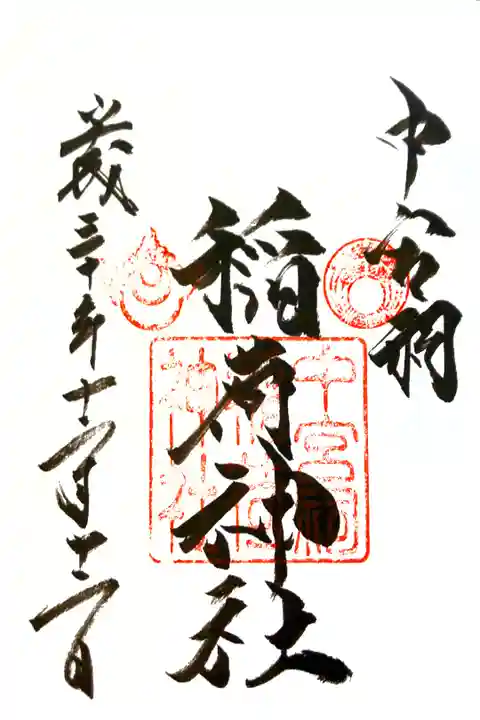 中宮祠
稲荷神社
平成三十年十二月十二日
中宮祠
稲荷
神社